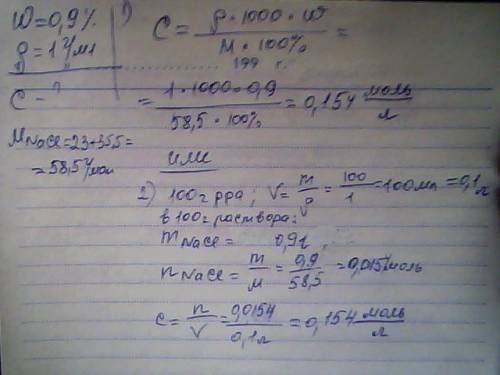 W=0,9%
ρ=1 г/мл
C - ?
M NaCl=23+35,5=
=58,5 г/моль
1) C = ρ·1000·W / M·100% =
= 1·1000·0,9 / 58,5·100% = 0,154 моль/л
или
2) 100г рра; V= m/ρ = 100/1 =100мл =0,1л
в 100г раствора:
m NaCl = 0,9г,
n NaCl = m/M = 0,9/58,5 =0,0154моль
c= n/V = 0,0154/0,1л =0,154 моль/л